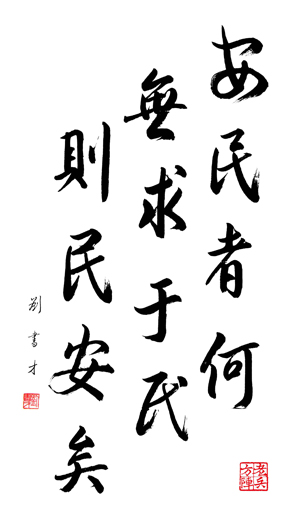 安民者何
無求于民
則民安矣
劉書才